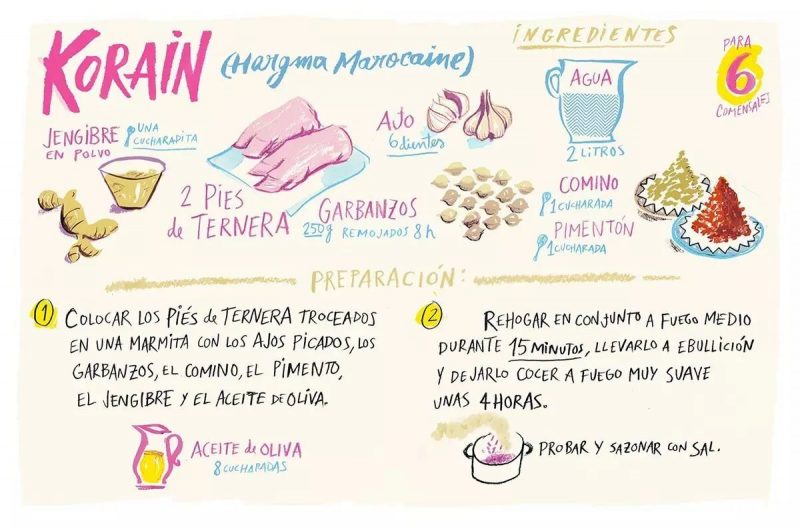 KORAIN
(Hargma Marocaine)
INGREDIENTES
PARA
6
COMENSALES
JENGIBRE
EN POLVO
UNA
CUCHARADITA
2 PIES
de TERNERA
AJO
6 dientes
GARBANZOS
250g REMOJADOS 8 h
AGUA
2 LITROS
COMINO
1 CUCHARADA
PIMENTÓN
1 CUCHARADA
PREPARACIÓN:
1 COLOCAR LOS PIÉS de TERNERA TROCEADOS
EN UNA MARMITA CON LOS AJOS PICADOS, LOS
GARBANZOS, EL COMINO, EL PIMENTO,
EL JENGIBRE Y EL ACEITE DE OLIVA.
ACEITE de OLIVA
8 CUCHARADAS
2 REHOGAR EN CONJUNTO A FUEGO MEDIO
DURANTE 15 MINUTOS, LLEVARLO A EBULLICIÓN
Y DEJARLO COCER A FUEGO MUY SUAVE
UNAS 4 HORAS.
PROBAR Y SAZONAR CON SAL.